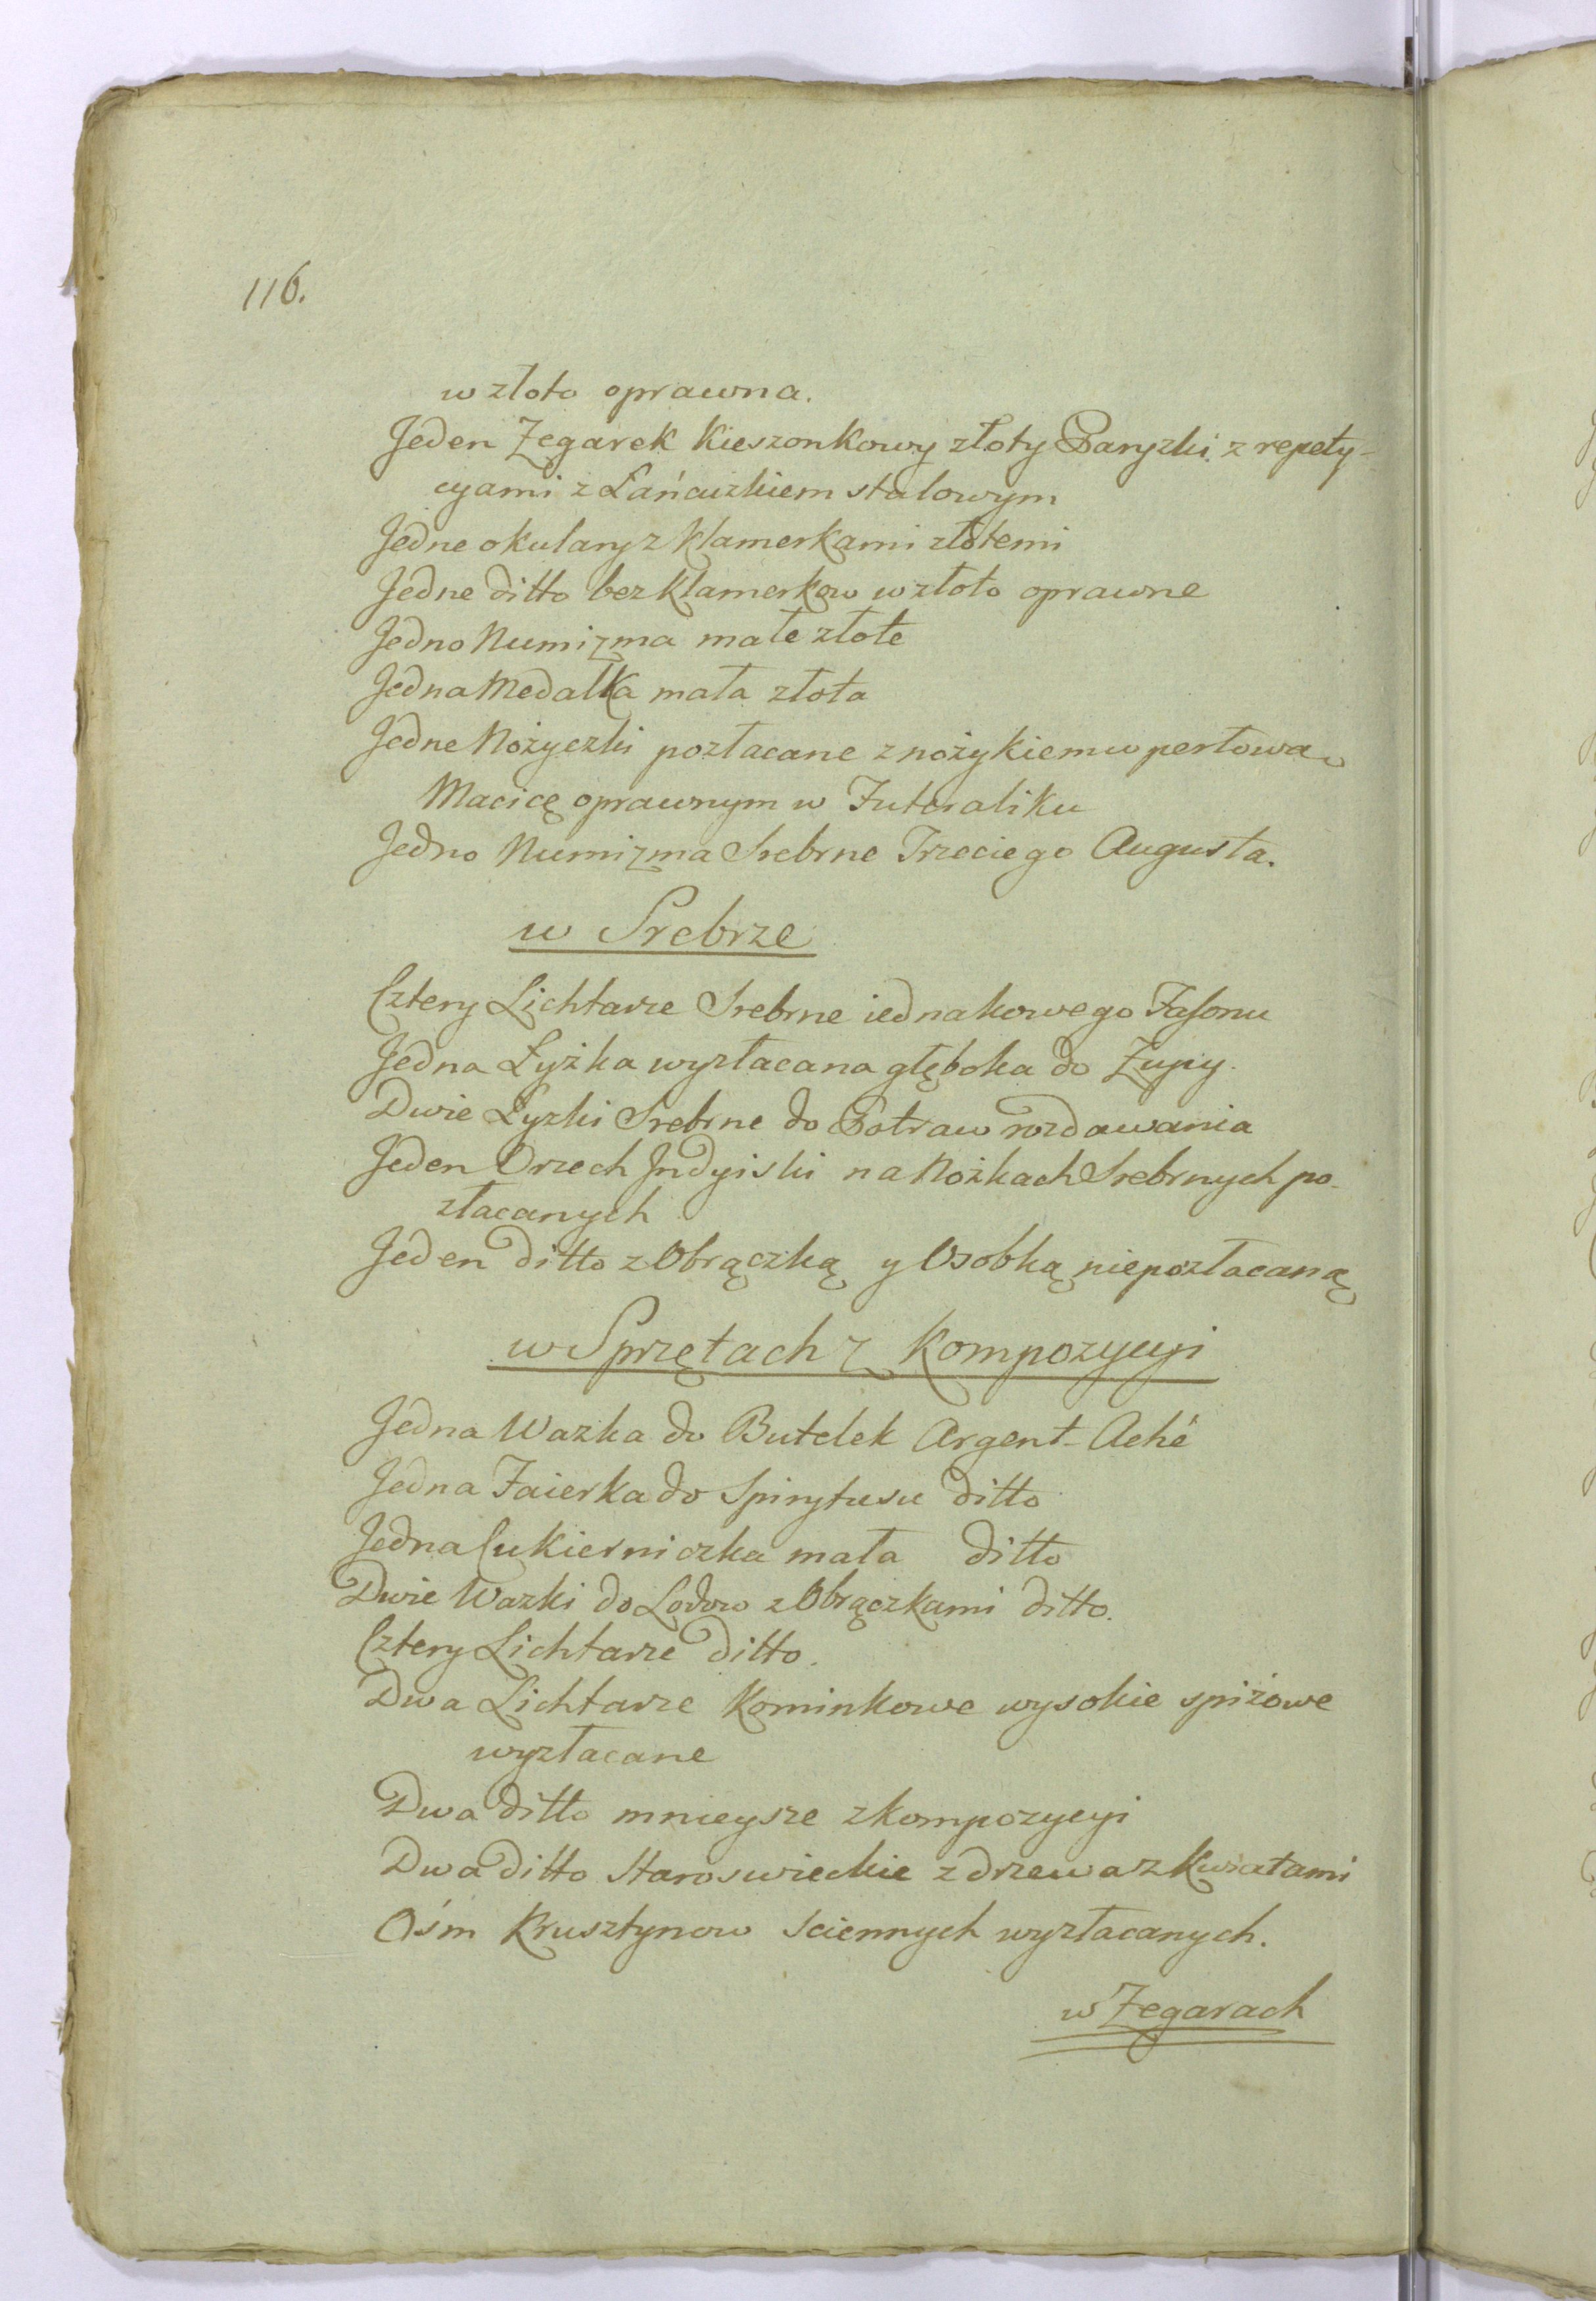 116.
w złoto oprawna.
Jeden Zegarek Kieszonkowy złoty Paryzki z repety-
cyami z Łańcuzkiem stalowym
Jedne okulary z Klamerkami złotemi
Jedne ditto bez Klamerkow w złoto oprawne
Jedno Numizma małe złote
Jedna Medalka mała złota
Jedne Nożyczki pozłacane z nożykiem w perłowa
Macicę oprawnym w Futeraliku
Jedno Numizma Srebrne Trzeciego Augusta.
w Srebrze
Cztery Lichtarze Srebrne iednakowego Fasonu
Jedna Łyżka wyzłacana głęboka do Zupy.
Dwie Łyzki Srebrne do Potraw rozdawania
Jeden Orzech Jndyiski na Nożkach Srebrnych po-
złacanych
Jeden ditto z Obrączką y Osobką niepozłacaną
w Sprzętach z Kompozycyi
Jedna Wazka do Butelek Argent-Aché
Jedna Faierka do Spirytusu ditto
Jedna Cukierniczka mała ditto
Dwie Wazki do Lodow z Obrączkami ditto.
Cztery Lichtarze ditto.
Dwa Lichtarze Kominkowe wysokie spiżowe
wyzłacane
Dwa ditto mnieysze z kompozycyi
Dwa ditto Staroswieckie z drzewa z Kwiatami
Ośm Krusztynow sciennych wyzłacanych.
w Zegarach